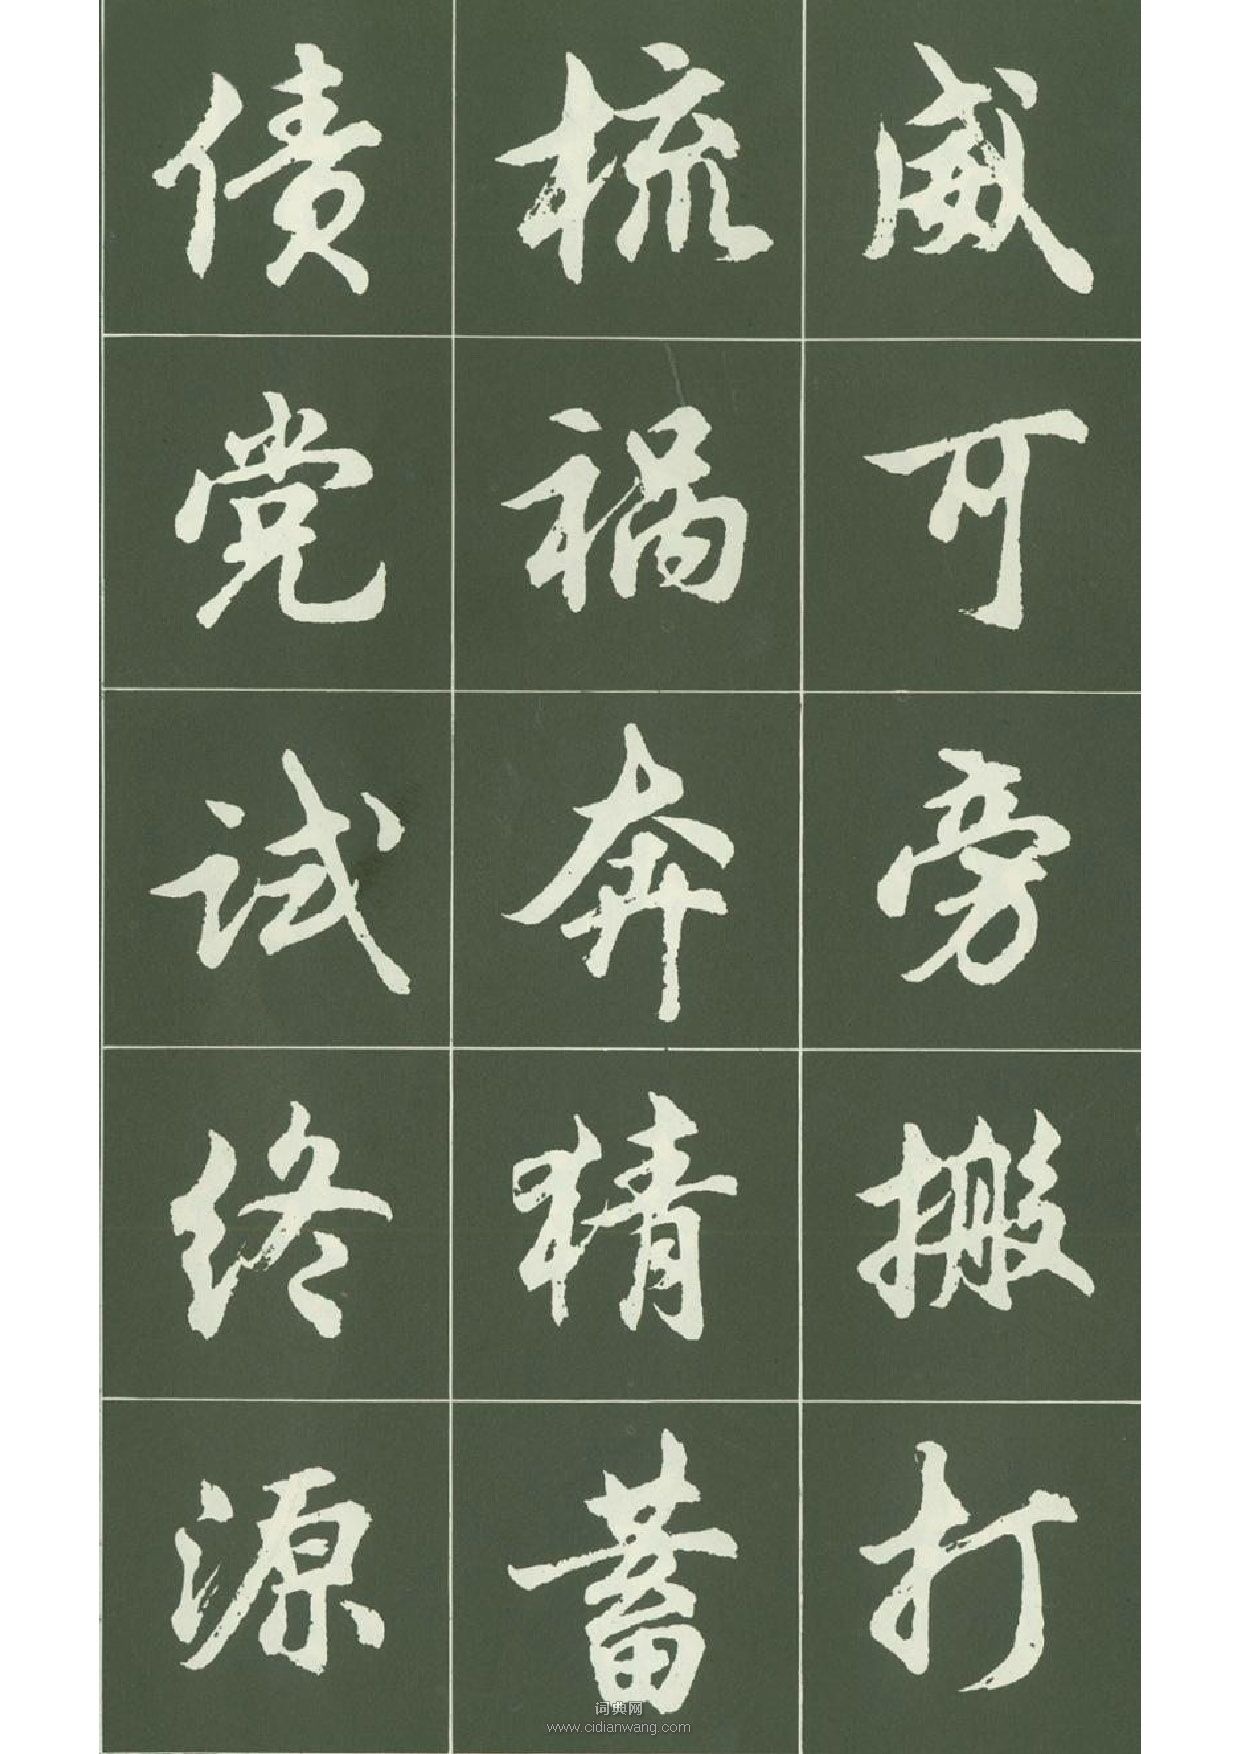 威可旁搬打
梳祸奔猜蓄
债党试终源
词典网
www.cidianwang.com